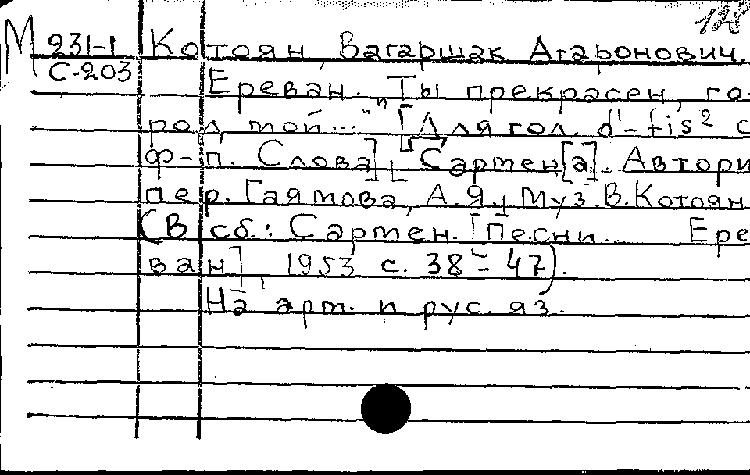 128
М 231-1 Котоян, Вагаршак Агаронович.
С-203 Ереван. "Ты прекрасен, го-
род мой..." [Для гол. d'-fis² с
ф-п. Слова] [Сармен[а]. Автори
пер. Гаямова, А.Я., муз. В. Котоян
(В сб.: Сармен. [Песни... Ере-
ван], 1953 с. 38-47).
На арм. и рус. яз.